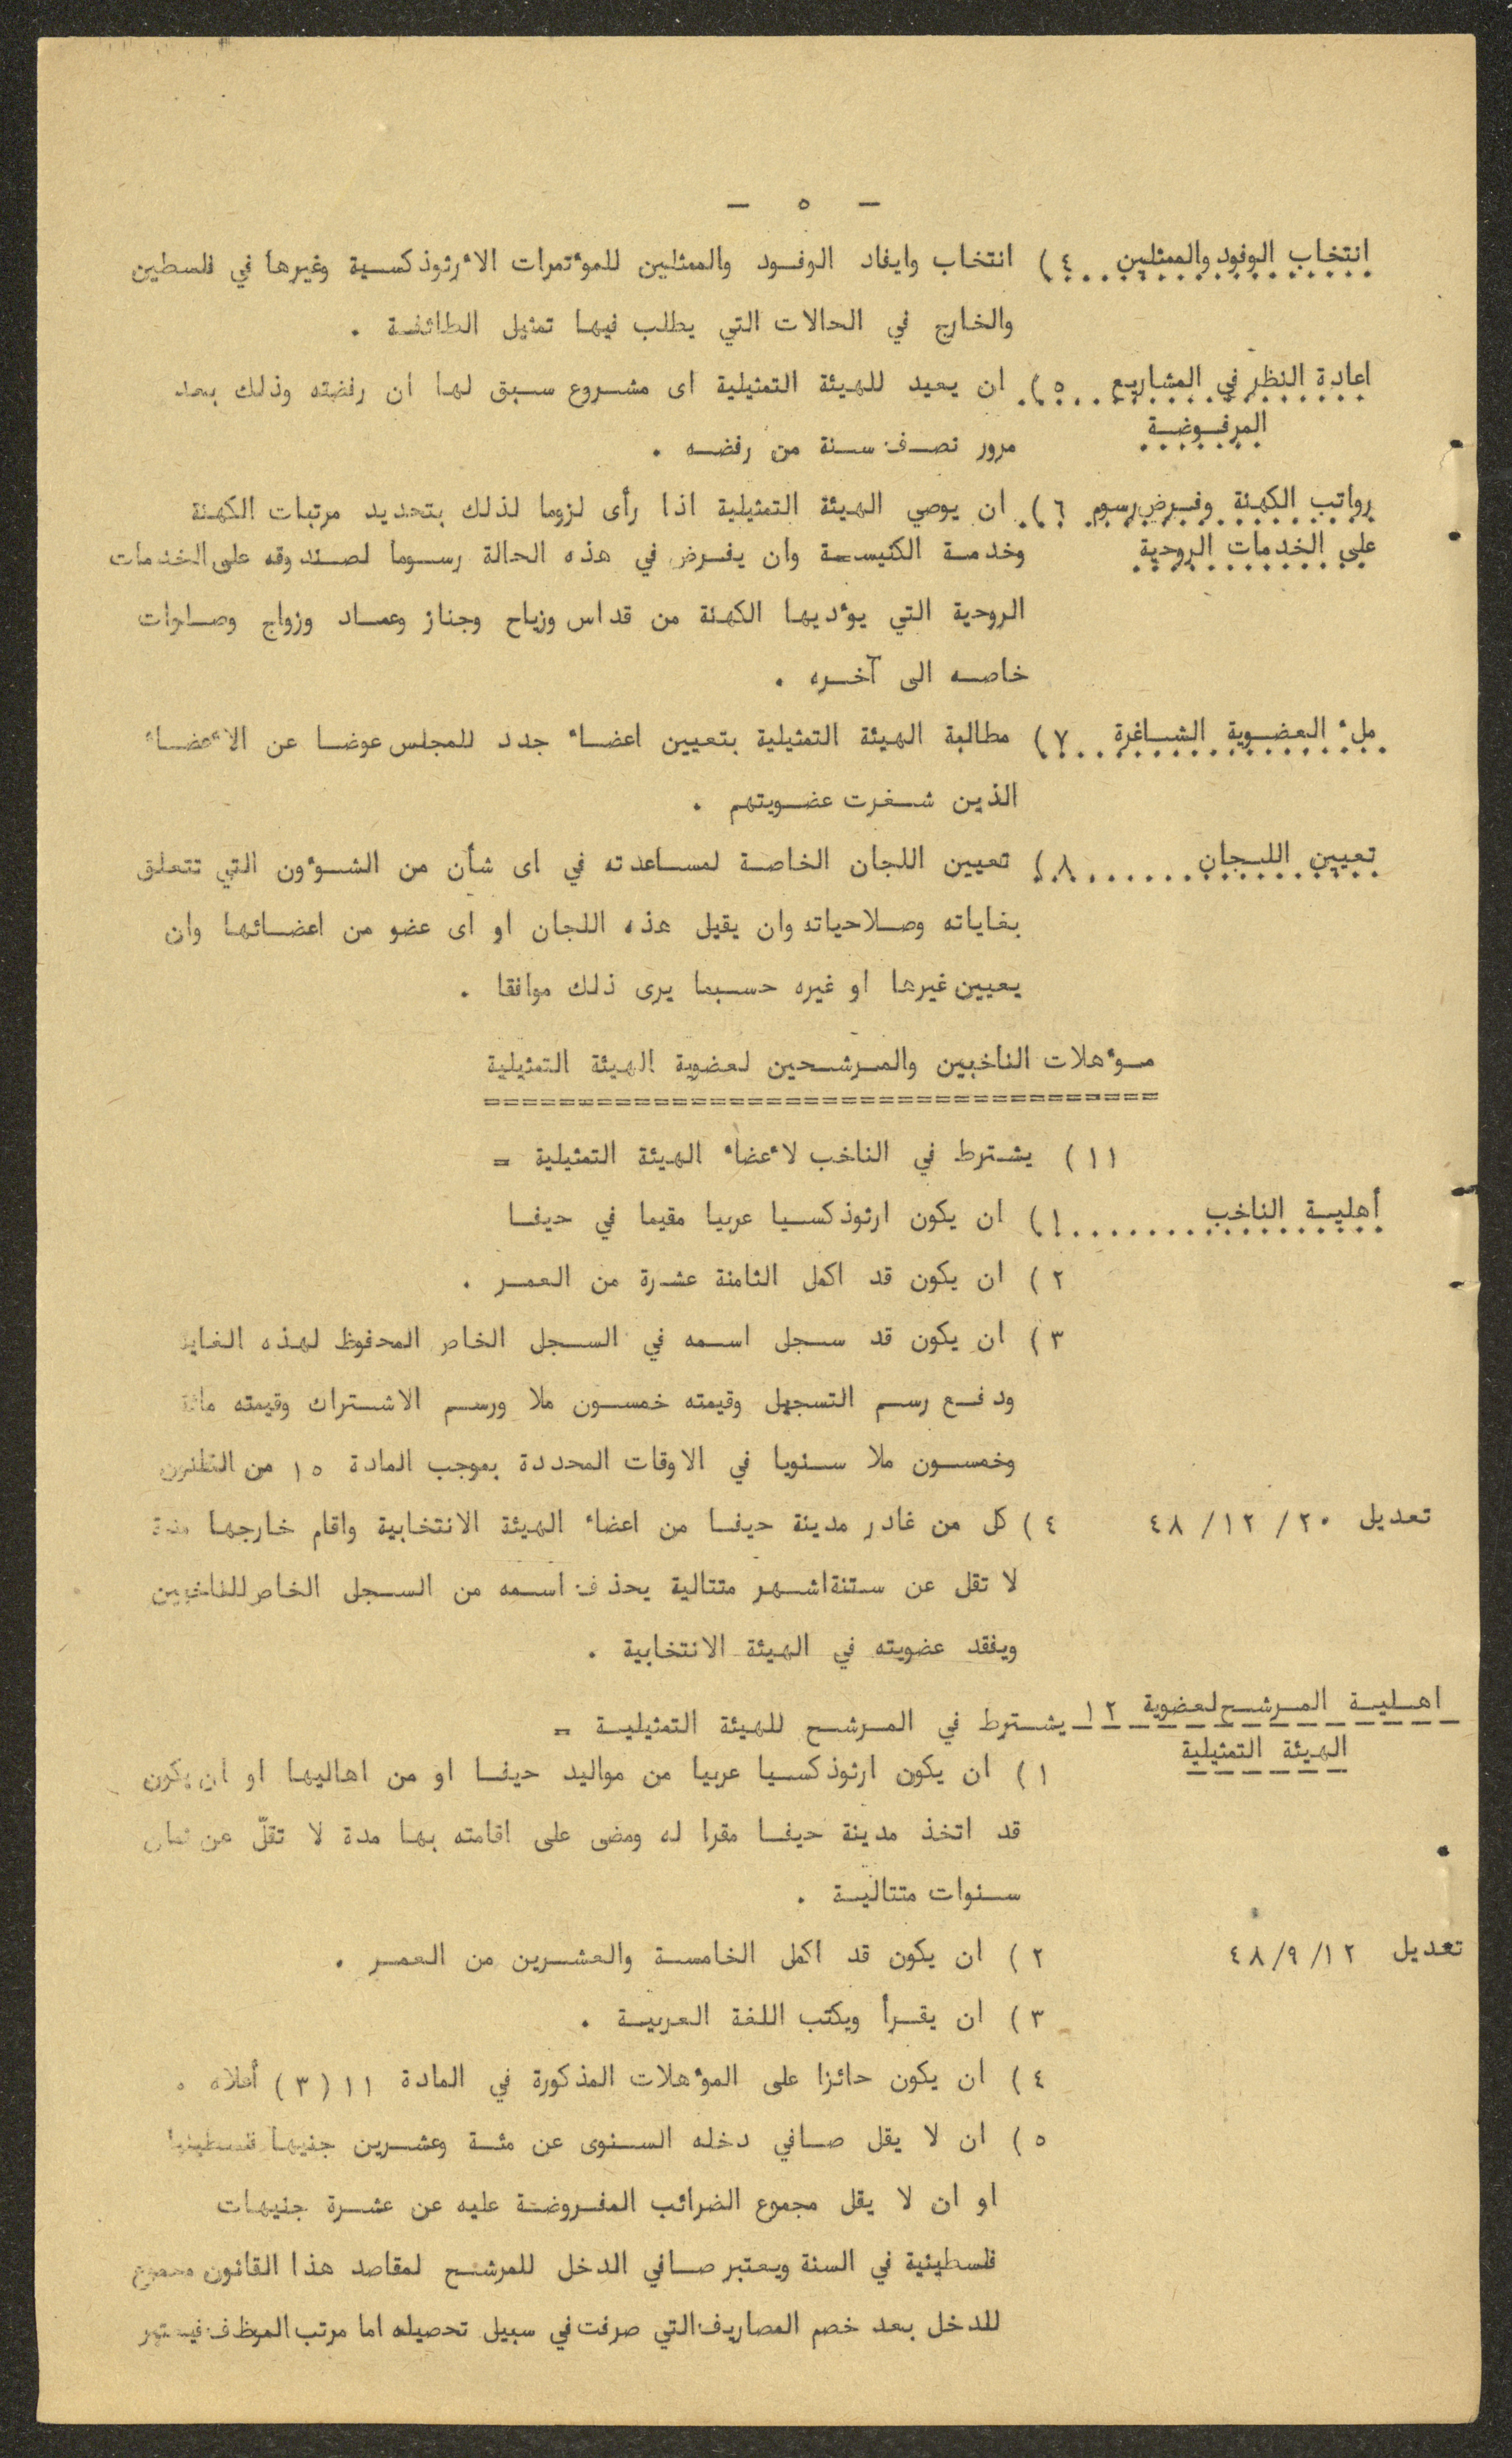 - ٥ -
انتخاب الوفود والممثلين ٤) انتخاب وايفاد الوفود والممثلين للمؤتمرات الأرثوذكسية وغيرها في فلسطين
والخارج في الحالات التي يطلب فيها تمثيل الطائفة .
اعادة النظر في المشاريع ٥) ان يعيد للهيئة التمثيلية اى مشروع سبق لها ان رفضته وذلك بعد
المرفوضة
مرور نصف سنة من رفضه .
رواتب الكهنة وفرض رسوم ٦) ان يوصي الهيئة التمثيلية اذا رأى لزوما لذلك بتحديد مرتبات الكهنة
على الخدمات الروحية وخدمة الكنيسة وان يفرض في هذه الحالة رسوما لصندوقه على الخدمات
الروحية التي يؤديها الكهنة من قداس وزياح وجناز وعماد وزواج وصلوات
خاصه الى آخره .
ملء العضوية الشاغرة ٧) مطالبة الهيئة التمثيلية بتعيين اعضاء جدد للمجلس عوضا عن الأعضاء
الذين شغرت عضويتهم .
تعيين اللجان ......٨) تعيين اللجان الخاصة لمساعدته في اى شأن من الشؤون التي تتعلق
بغاياته وصلاحياته وان يقيل هذه اللجان او اى عضو من اعضائها وان
يعيين غيرها او غيره حسبما يرى ذلك موافقا .
مؤهلات الناخبين والمرشحين لعضوية الهيئة التمثيلية
====================================
١١) يشترط في الناخب لأعضاء الهيئة التمثيلية =
أهلية الناخب .......١) ان يكون ارثوذكسيا عربيا مقيما في حيفا
٢) ان يكون قد اكمل الثامنة عشرة من العمر .
٣) ان يكون قد سجل اسمه في السجل الخاص المحفوظ لهذه الغاية
ودفع رسم التسجيل وقيمته خمسون ملا ورسم الاشتراك وقيمته مائة
وخمسون ملا سنويا في الاوقات المحددة بموجب المادة ١٥ من القانون
تعديل ٢٠/ ١٢/ ٤٨ ٤) كل من غادر مدينة حيفا من اعضاء الهيئة الانتخابية واقام خارجها مدة
لا تقل عن ستنة اشهر متتالية يحذف اسمه من السجل الخاص للناخبين
ويفقد عضويته في الهيئة الانتخابية .
اهلية المرشح لعضوية ١٢ يشترط في المرشح للهيئة التمثيلية =
الهيئة التمثيلية
١) ان يكون ارثوذكسيا عربيا من مواليد حيفا او من اهاليها او ان يكون
قد اتخذ مدينة حيفا مقرا له ومضى على اقامته بها مدة لا تقلّ عن ثمان
سنوات متتالية .
تعديل ١٢/ ٩/ ٤٨ ٢) ان يكون قد اكمل الخامسة والعشرين من العمر .
٣) ان يقرأ ويكتب اللغة العربية .
٤) ان يكون حائزا على المؤهلات المذكورة في المادة ١١ (٣) أعلاه .
٥) ان لا يقل صافي دخله السنوى عن مئة وعشرين جنيها فلسطينيا
او ان لا يقل مجموع الضرائب المفروضة عليه عن عشرة جنيهات
فلسطينية في السنة ويعتبر صافي الدخل للمرشح لمقاصد هذا القانون مجموع
للدخل بعد خصم المصاريف التي صرفت في سبيل تحصيله اما مرتب الموظف فيعتبر